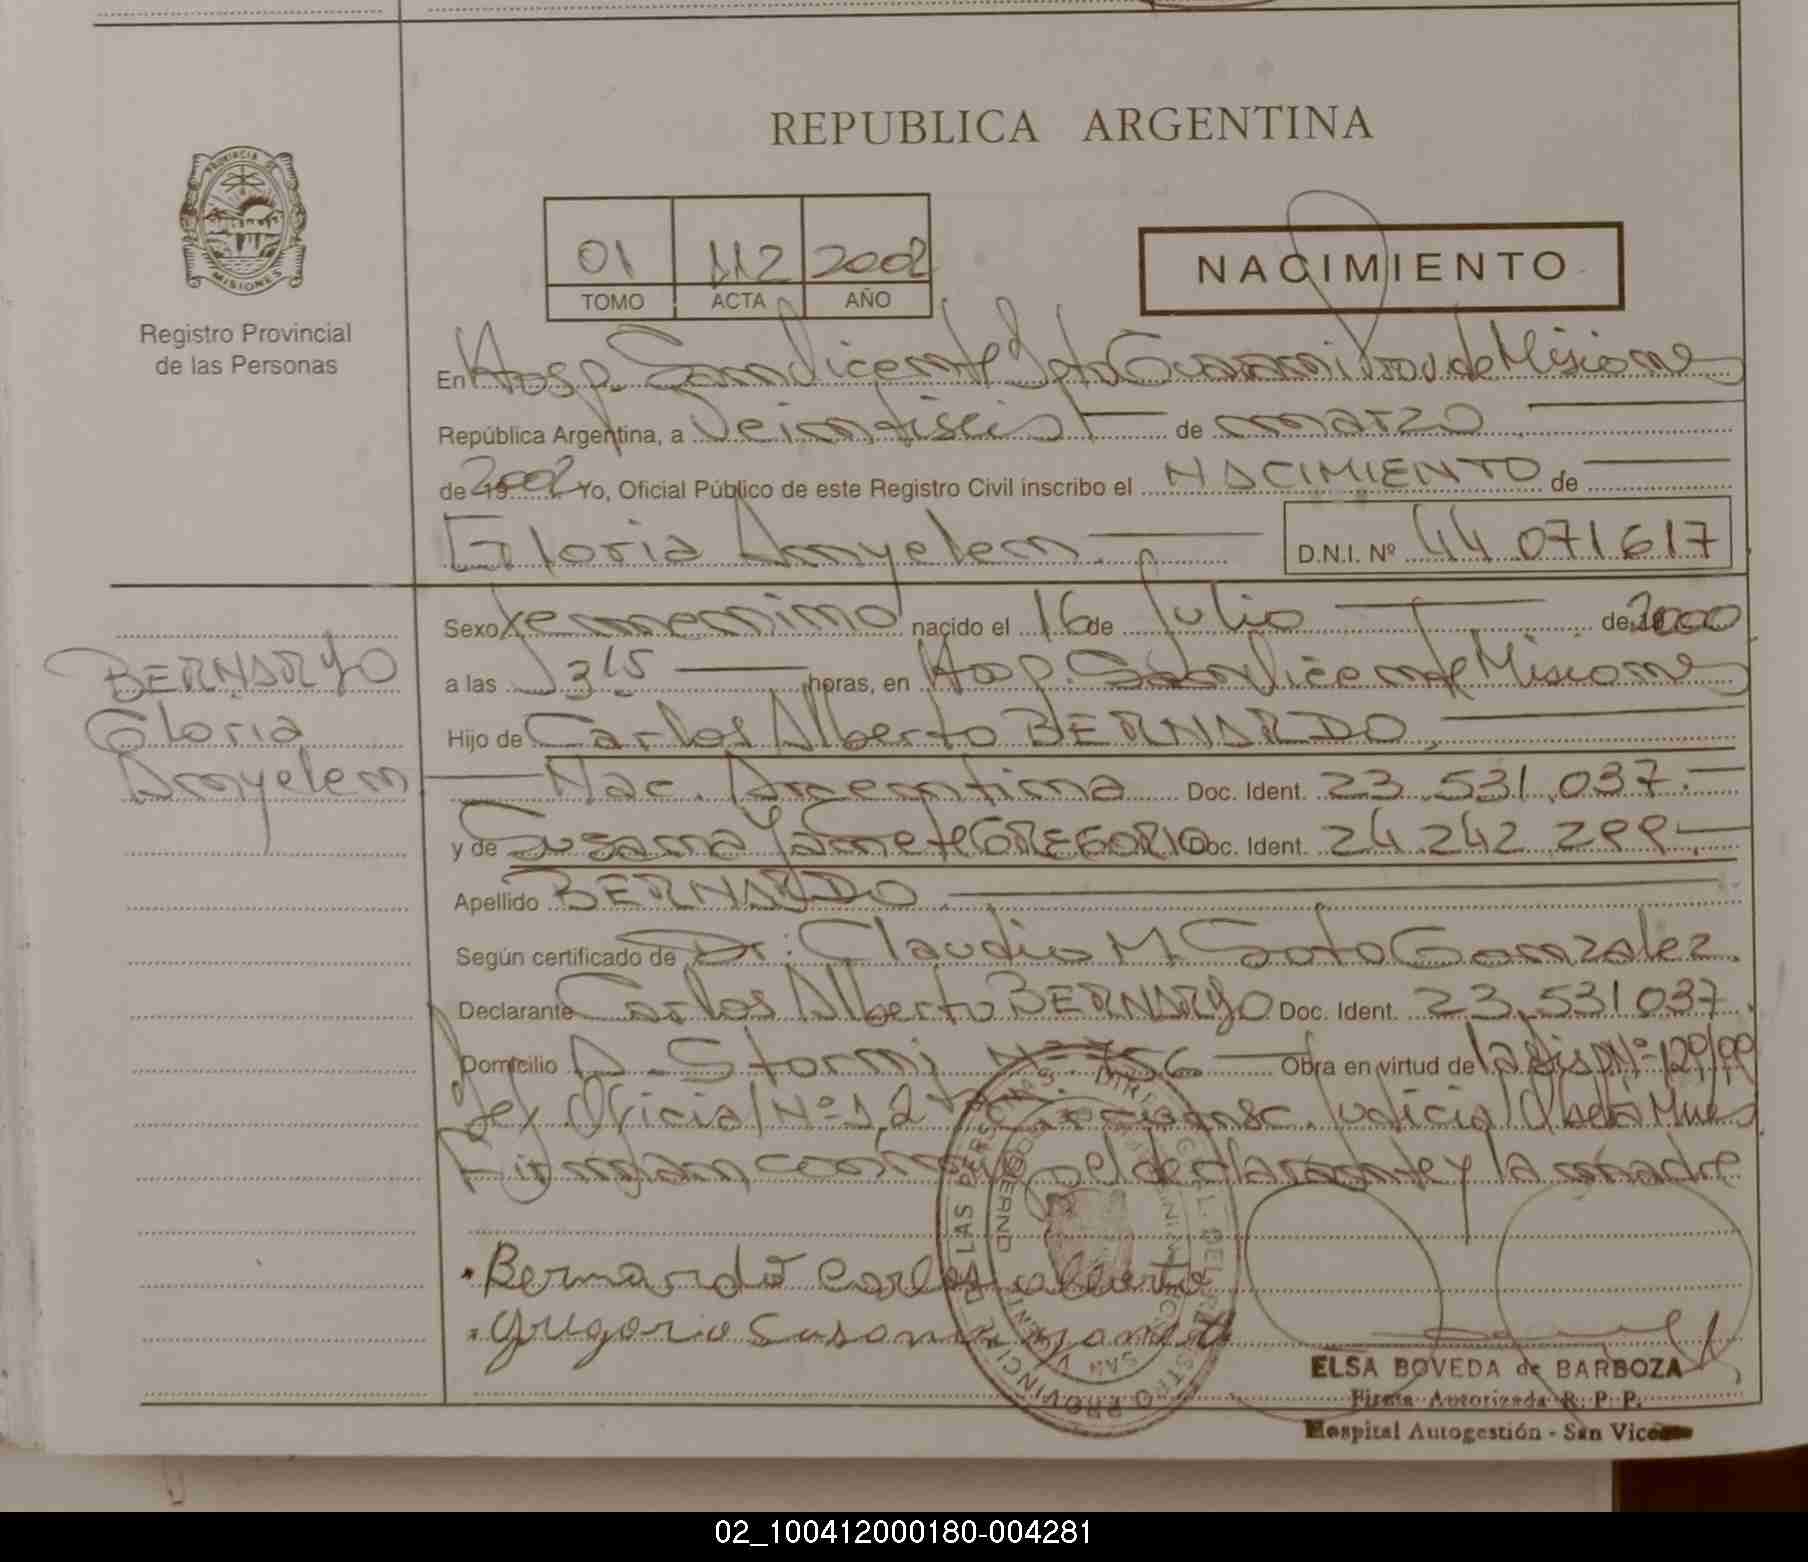 REPUBLICA ARGENTINA
PROVINCIA DE MISIONES
Registro Provincial
de las Personas
01 112 2002
TOMO ACTA AÑO
NACIMIENTO
En Hosp. San Vicente Dpto Guarani Prov. de Misiones
República Argentina, a Veintiseis de marzo
de 2002 Yo, Oficial Público de este Registro Civil inscribo el NACIMIENTO de
Gloria Anyelen. D.N.I. Nº 44 071617
Sexo Femenino nacido el 16 de Julio de 2000
a las 315 horas, en Hosp. San Vicente Misiones
Hijo de Carlos Alberto BERNARDO,
Nac. Argentina Doc. Ident. 23.531.037.
y de Susana Yanete GREGORIO Doc. Ident. 24 242 299.
Apellido BERNARDO
Según certificado de Dr: Claudio M Soto Gonzalez.
Declarante Carlos Alberto BERNARDO Doc. Ident. 23.531037.
Domicilio A. Storni Nº 756 Obra en virtud de la Disp Nº 129/99
Oficial Nº 1, 2 Judicial
Firman conmigo el declarante y la madre
BERNARDO
Gloria
Anyelen
Bernardo Carlos alberto
Gregorio Susana Yanete
ELSA BOVEDA de BARBOZA
Firma Autorizada R. P. P.
Hospital Autogestión - San Vicente
02_100412000180-004281